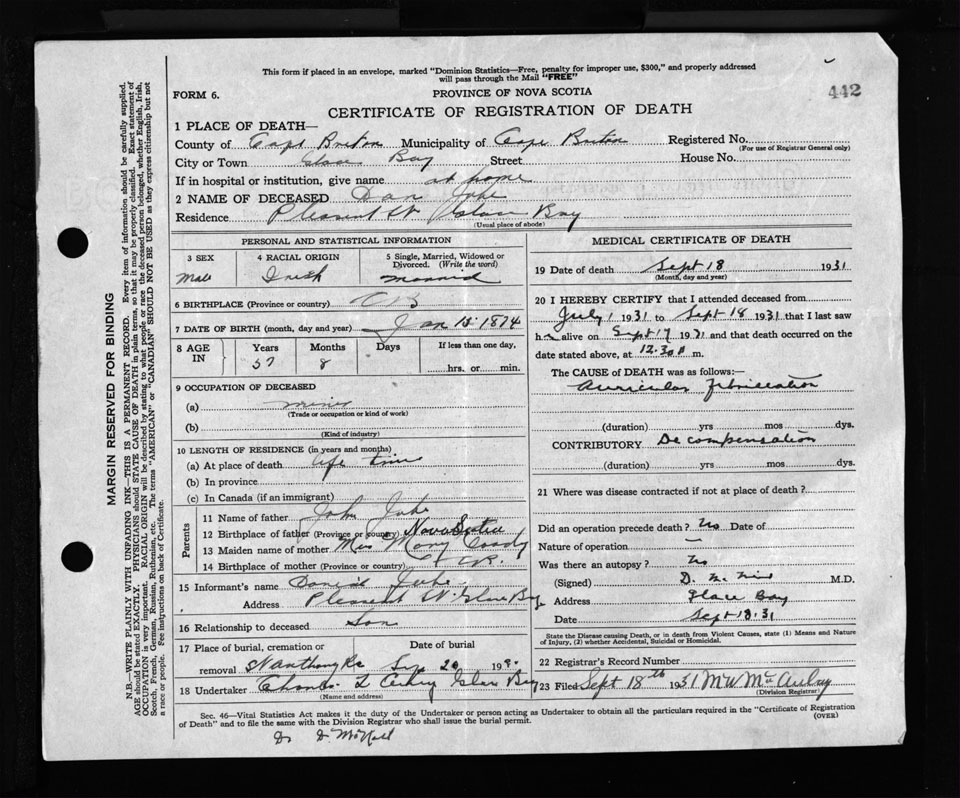 This form if placed in an envelope, marked "Dominion Statistics—Free, penalty for improper use, $300," and properly addressed
will pass through the Mail "FREE"
442
FORM 6. PROVINCE OF NOVA SCOTIA
CERTIFICATE OF REGISTRATION OF DEATH
1 PLACE OF DEATH—
County of Cape Breton Municipality of Cape Breton Registered No.
(For use of Registrar General only)
City or Town Glace Bay Street House No.
If in hospital or institution, give name at home
2 NAME OF DECEASED Dan
Residence Plesent St Glace Bay
(Usual place of abode)
PERSONAL AND STATISTICAL INFORMATION
3 SEX 4 RACIAL ORIGIN 5 Single, Married, Widowed or
Divorced. (Write the word)
Male Irish married
6 BIRTHPLACE (Province or country) C B
7 DATE OF BIRTH (month, day and year) Jan 15 1874
8 AGE IN Years Months Days If less than one day,
57 8 hrs. or min.
9 OCCUPATION OF DECEASED
(a) miner
(Trade or occupation or kind of work)
(b)
(Kind of industry)
10 LENGTH OF RESIDENCE (in years and months)
(a) At place of death life time
(b) In province
(c) In Canada (if an immigrant)
Parents
11 Name of father John
12 Birthplace of father (Province or country) Nova Scotia
13 Maiden name of mother Mis Mary Coady
14 Birthplace of mother (Province or country) C B.
15 Informant's name Daniel
Address Plesent St. Glace Bay
16 Relationship to deceased Son
17 Place of burial, cremation or Date of burial
removal 20 19
18 Undertaker Glace Bay
(Name and address)
MEDICAL CERTIFICATE OF DEATH
19 Date of death Sept 18 1931
(Month, day and year)
20 I HEREBY CERTIFY that I attended deceased from
July 1 1931 to Sept 18 1931 that I last saw
h alive on Sept 17 1931 and that death occurred on the
date stated above, at 12.30 m.
The CAUSE of DEATH was as follows:—
Auricular Fibrillation
(duration) yrs mos dys.
CONTRIBUTORY Decompensation
(duration) yrs mos dys.
21 Where was disease contracted if not at place of death?
Did an operation precede death? No Date of
Nature of operation —
Was there an autopsy? No
(Signed) M.D.
Address Glace Bay
Date Sept 18.31
State the Disease causing Death, or in death from Violent Causes, state (1) Means and Nature
of Injury, (2) whether Accidental, Suicidal or Homicidal.
22 Registrar's Record Number
23 Filed Sept 18th 1931
(Division Registrar)
Sec. 46—Vital Statistics Act makes it the duty of the Undertaker or person acting as Undertaker to obtain all the particulars required in the "Certificate of Registration
of Death" and to file the same with the Division Registrar who shall issue the burial permit. (OVER)
MARGIN RESERVED FOR BINDING
N.B.—WRITE PLAINLY WITH UNFADING INK—THIS IS A PERMANENT RECORD. Every item of information should be carefully supplied.
AGE should be stated EXACTLY. PHYSICIANS should STATE CAUSE OF DEATH in plain terms, so that it may be properly classified. Exact statement of
OCCUPATION is very important. RACIAL ORIGIN will be described by stating to what people or race the deceased person belonged, whether English, Irish,
Scotch, French, German, Russian, Ruthenian, etc. The terms "AMERICAN" or "CANADIAN" SHOULD NOT BE USED as they express citizenship but not
a race or people. See instructions on back of Certificate.